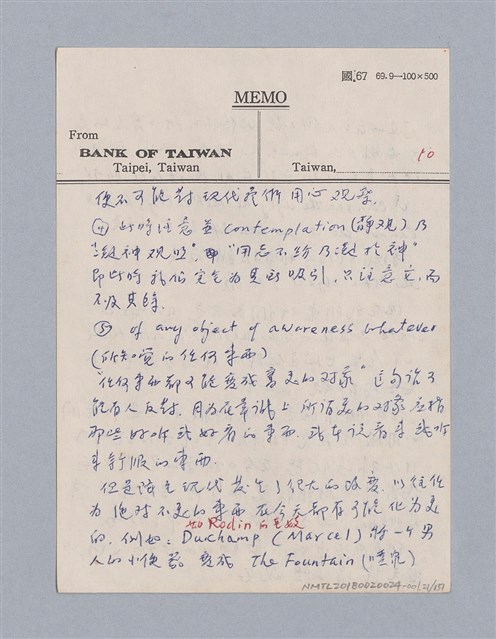 國.67 69.9—100×500
MEMO
From
BANK OF TAIWAN
Taipei, Taiwan
Taiwan,
50
便不可能對現代藝術用心观察.
④ 此時注意並 contemplation (静观) 乃
"凝神观照", 即 "用志不紛乃凝於神"
即此時我们完全为其所吸引, 只注意它, 而
不及其餘.
⑤ of any object of awareness whatever
(所知觉的任何東西)
"任何東西都可能变成審美的对象" 這句话可
能有人反对. 因为在常識上所谓美的对象应指
那些好听或好看的東西, 或者说看来或听
来舒服的東西.
但是語言現代发生了很大的改变. 以往作
为绝对不美的東西在今天都有可能化为美
如 Rodin 的老妓
的. 例如: Duchamp (Marcel) 將一个男
人的小便器变成 The Fountain (噴泉)
NMTL20180020024-001(21/151